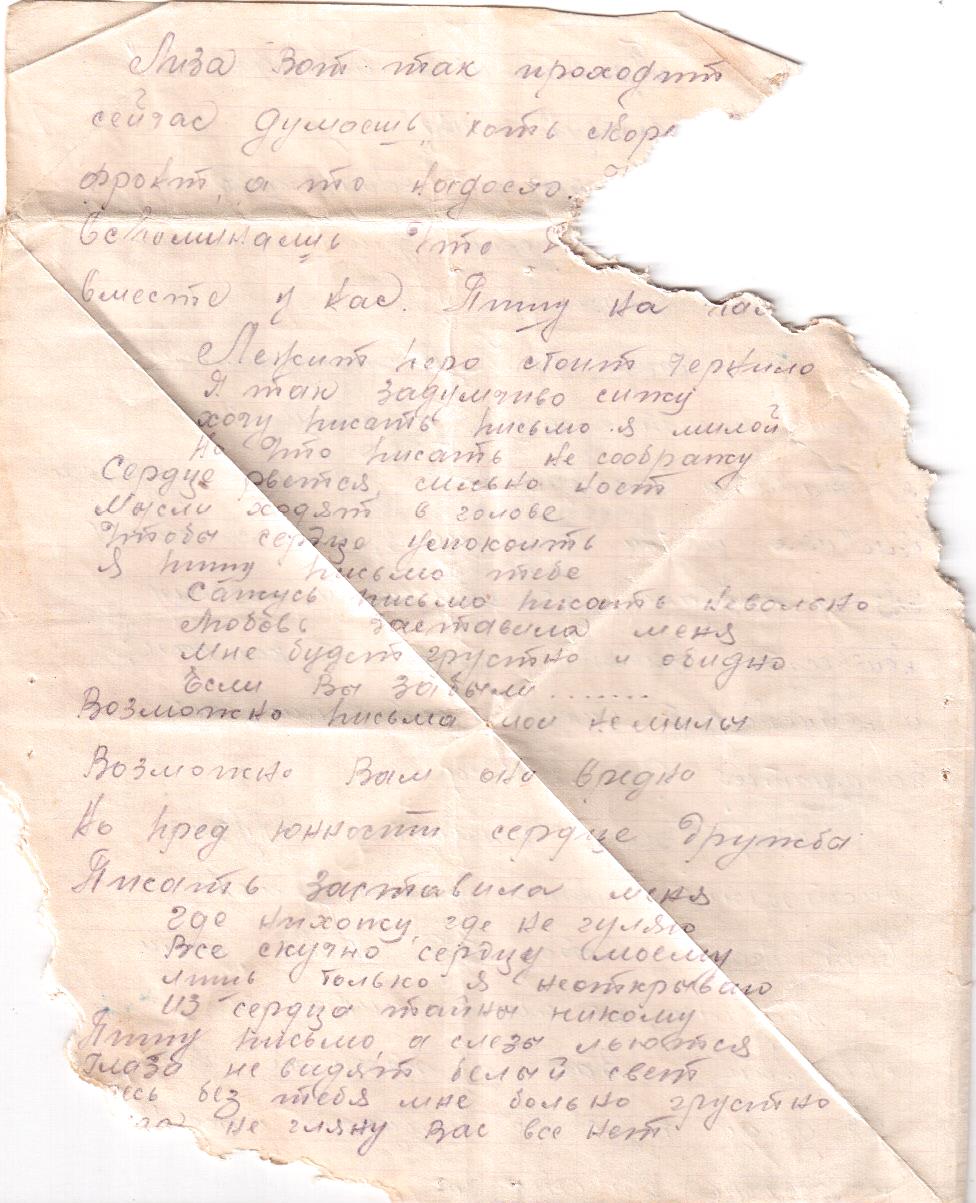 Лиза Вот так проходит
сейчас думаешь хоть скоре
фронт, а то надоело.
Вспоминаешь Что
вместе у нас. Пишу на
Лежит перо стоит чернило
Я так задумчиво сижу
хочу писать письмо я милой
Но что писать не соображу
Сердце рвется, сильно ноет
Мысли ходят в голове
Чтобы сердце успокоить
Я пишу письмо тебе
Сажусь письмо писать невольно
Любовь заставила меня
мне будет грустно и обидно
Если Вы забыли........
Возможно письма мои немилы
Возможно Вам оно вредно
Но пред юнности сердце дружба
Писать заставила меня
где нихожу, где не гуляю
Все скучно сердцу моему
лишь только я неоткрываю
из сердца тайны никому
Пишу письмо, а слезы льются
Глаза не видят белый свет
без тебя мне больно грустно
не гляну Вас все нет